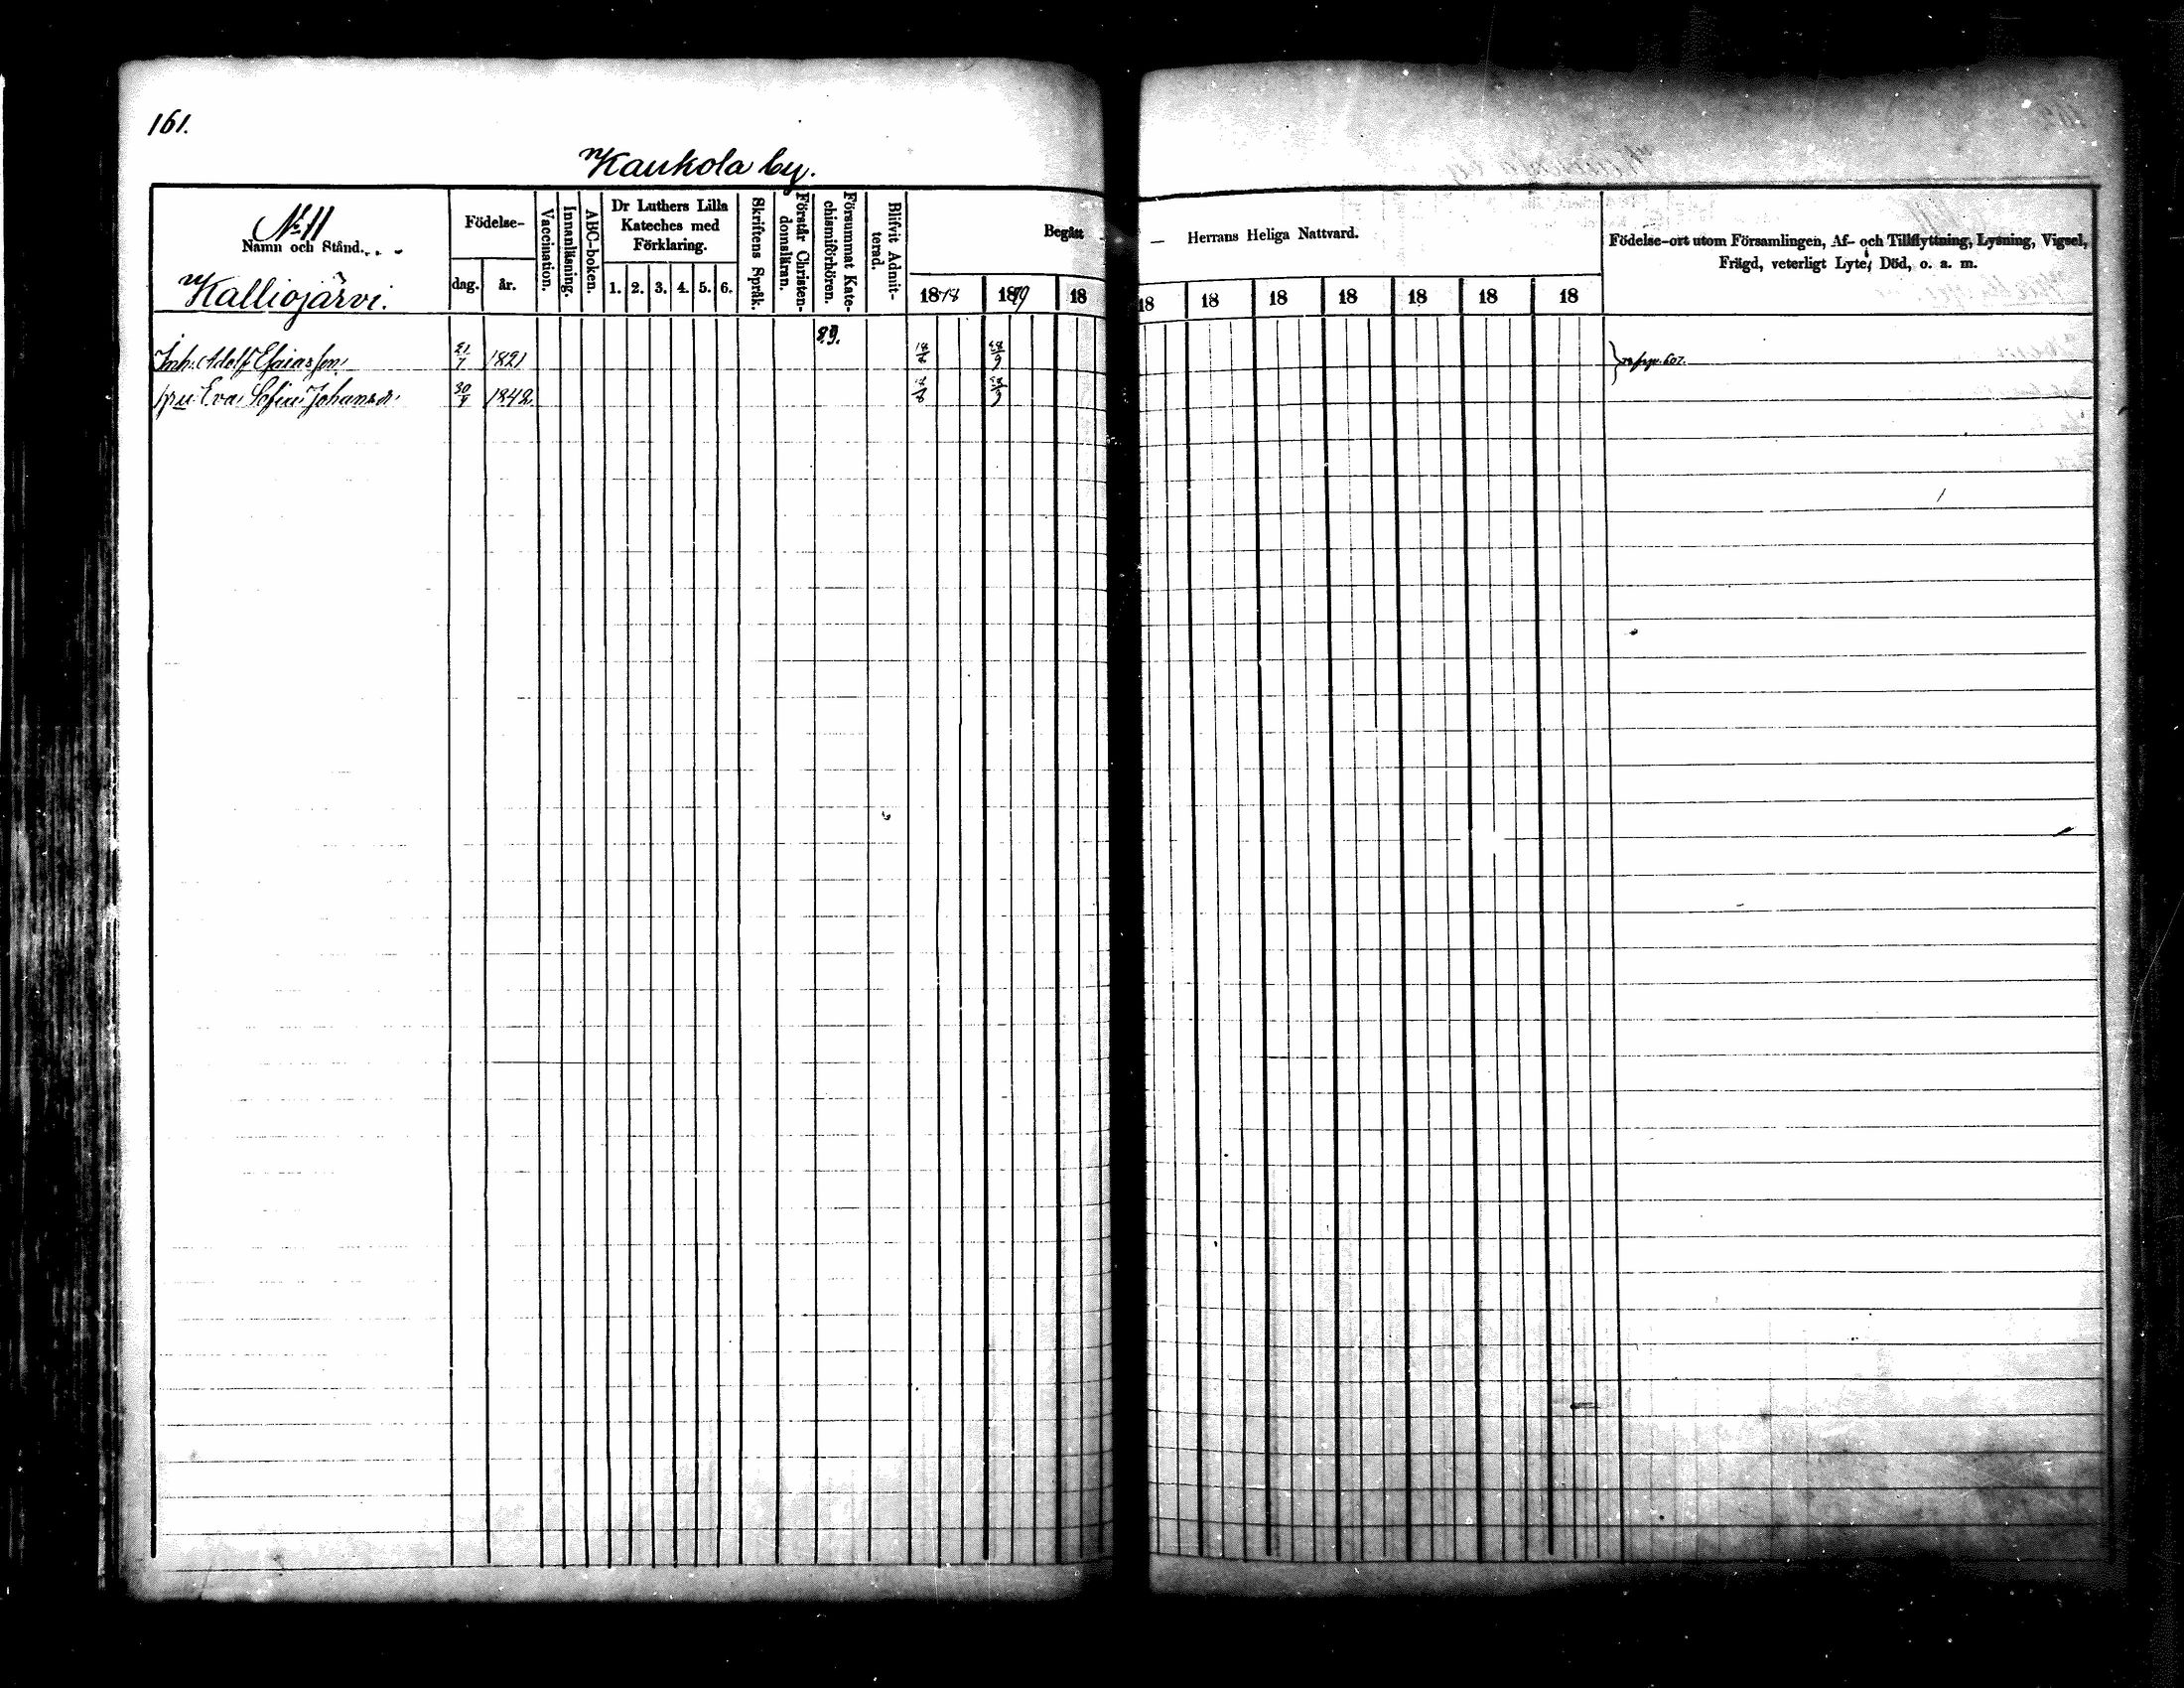 161.
Kaukola by.
No 11
Namn och Stånd.
Kalliojärvi.
Födelse-
dag. år.
Vaccination.
Innanläsning.
ABC-boken.
Dr Luthers Lilla
Kateches med
Förklaring.
1. 2. 3. 4. 5. 6.
Skriftens Språk.
Förstår Christen-
domsläran.
Försummat Kate-
chismiförhören.
Blifvit Admit-
terad.
Begått
1878 1879 18
— Herrans Heliga Nattvard.
18 18 18 18 18 18 18
Födelse-ort utom Församlingen, Af- och Tillflyttning, Lysning, Vigsel,
Frägd, veterligt Lyte, Död, o. a. m.
Inh. Adolf Esaiasson 21/7 1821
Eva Sofia Johansdr 30/9 1842.
607.